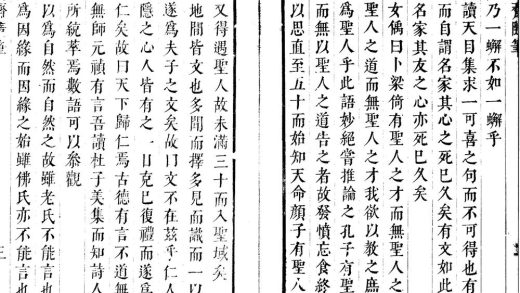 乃一蠏不如一蠏乎
讀天目集求一可喜之句而不可得也有
而自謂名家其心之死已久矣有文如此
名家其友之心亦死已久矣
女偊曰卜梁倚有聖人之才而無聖人之
聖人之道而無聖人之才我欲以教之庶
爲聖人乎此語妙絕當推論之孔子有聖
而無以聖人之道告之者故發憤忘食終
以思直至五十而始知天命顏子有聖人
又得遇聖人故未滿三十而入聖域矣
地閒皆文也多聞而擇多見而識而一以
遂爲夫子之文矣故曰文不在茲乎仁人
隱之心人皆有之一日克己復禮而遂爲
仁矣故曰天下歸仁焉古德有言不道無
無師元禎有言吾讀杜子美集而知詩人
所統萃焉數語可以叅觀
以爲自然而自然之故雖老氏不能言也
爲因緣而因緣之始雖佛氏亦不能言也
三